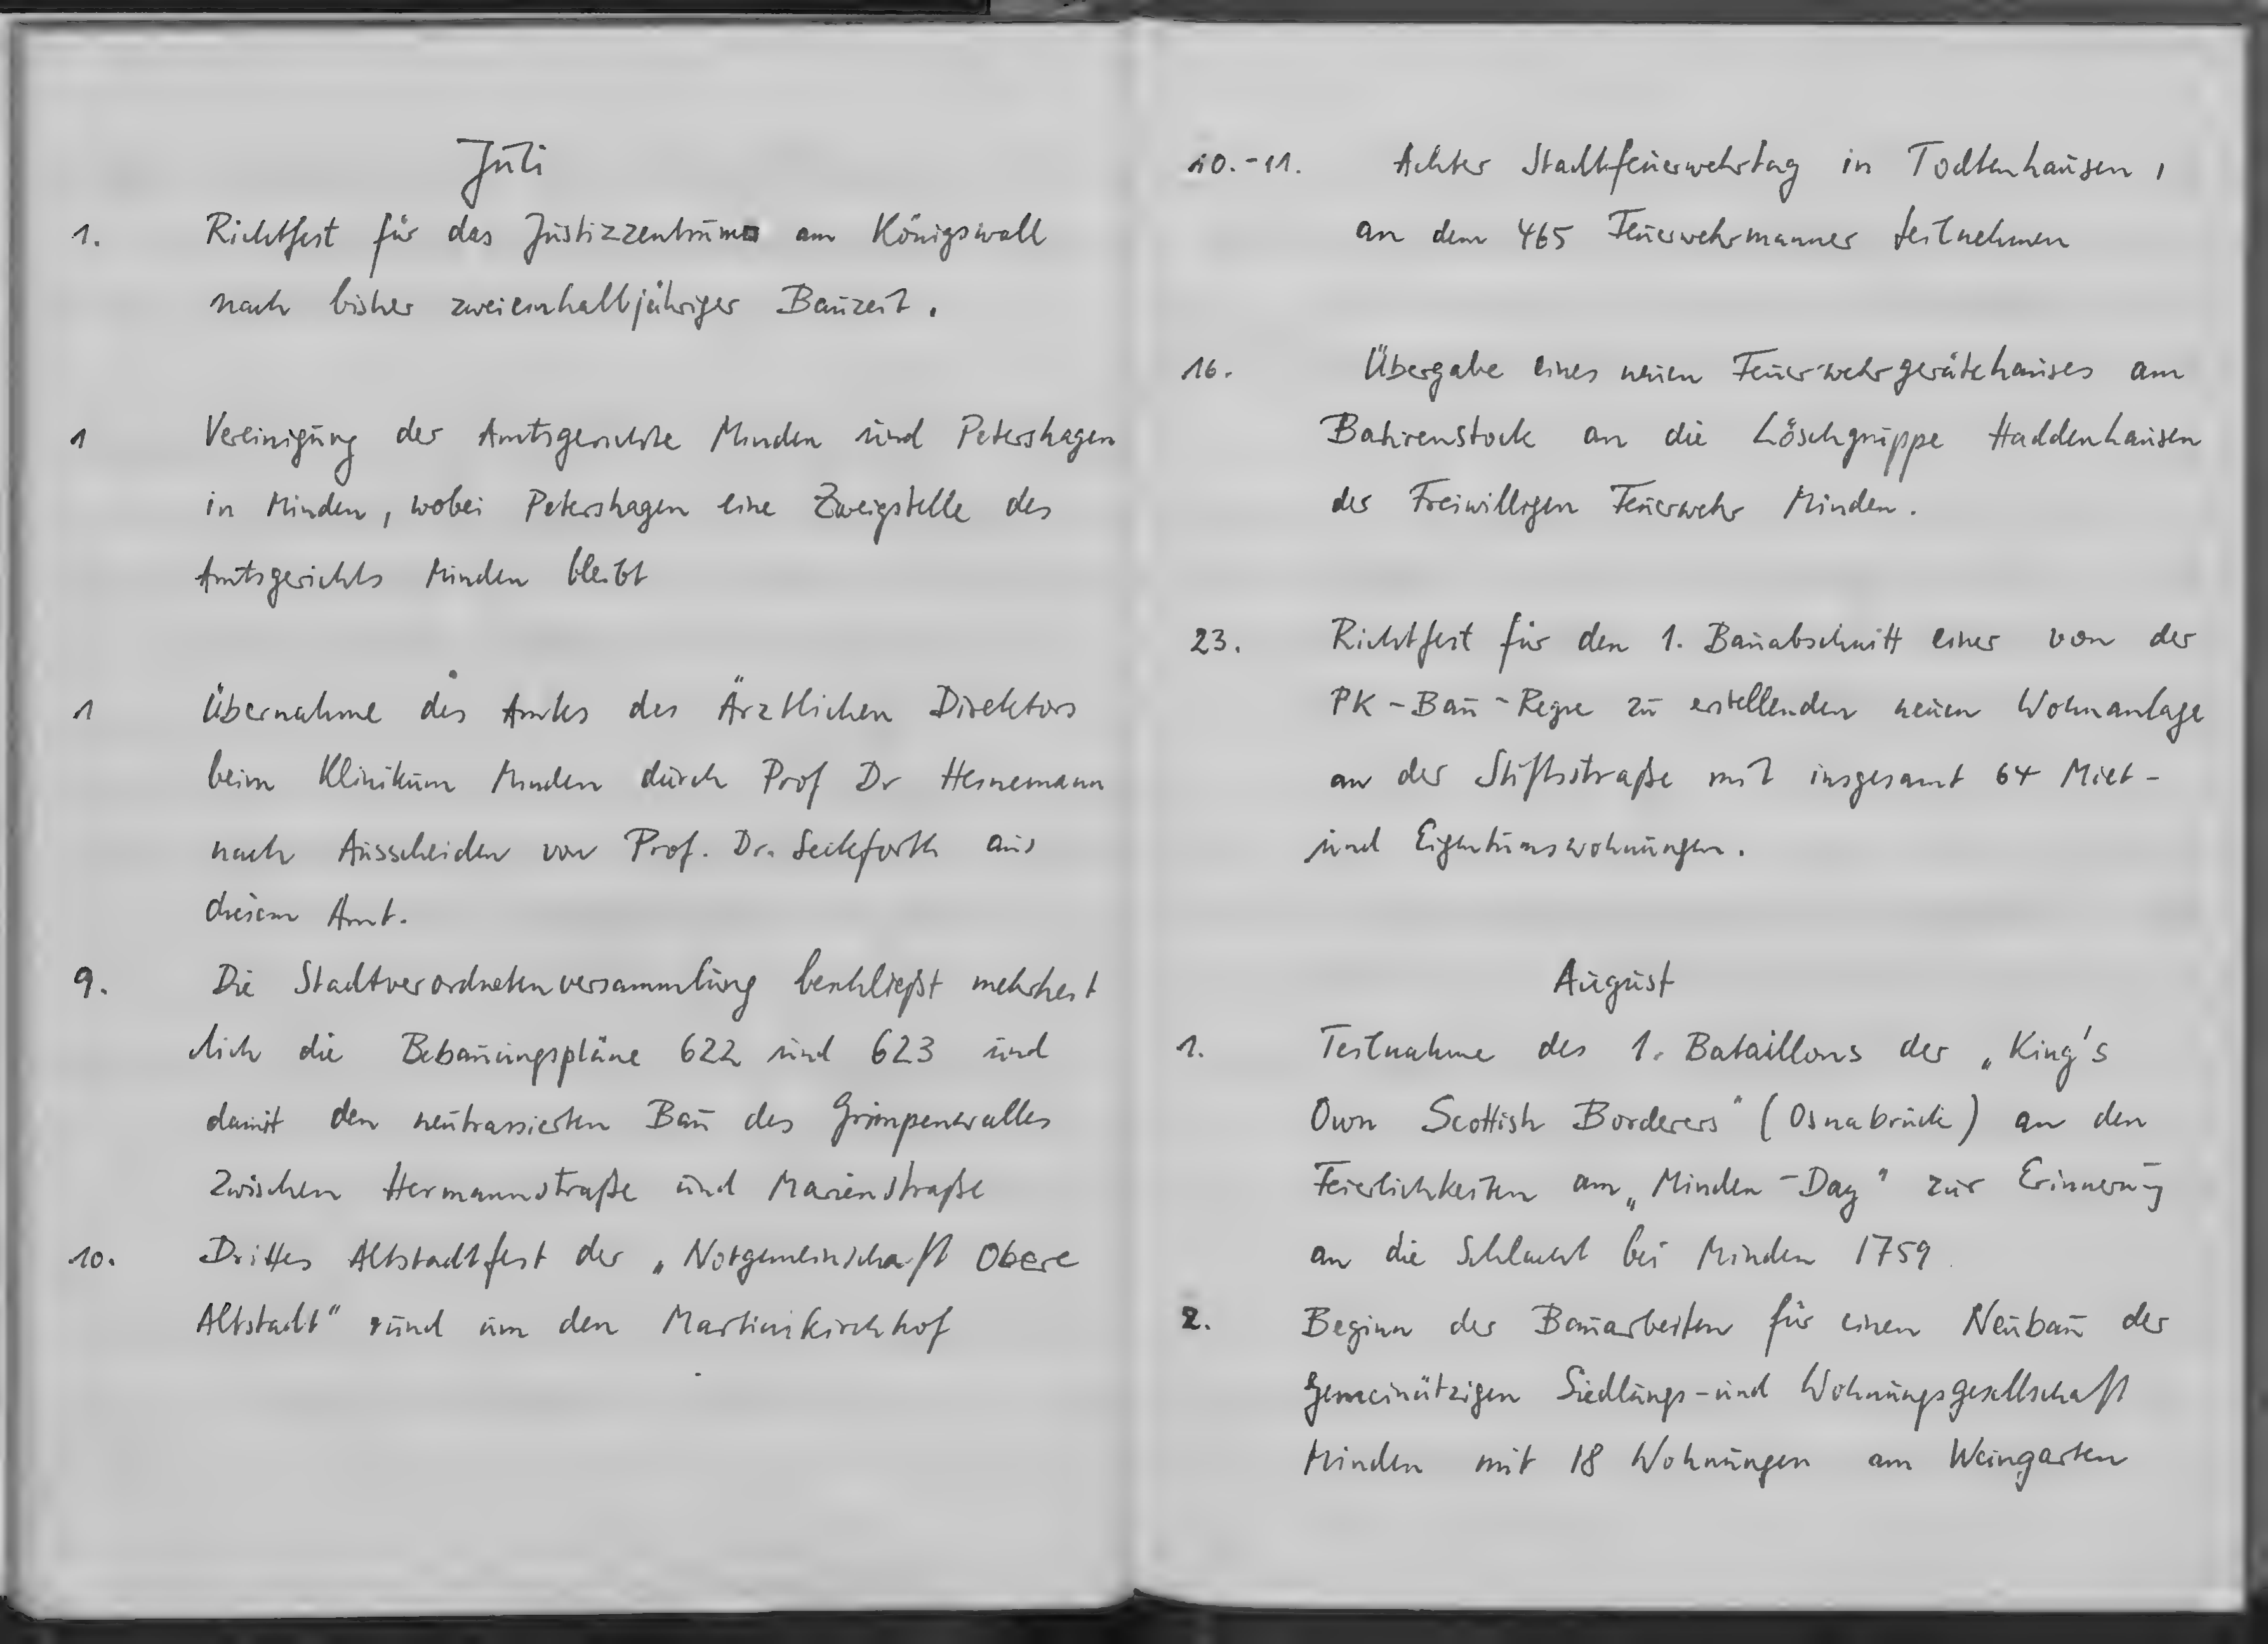 Juli
1. Richtfest für das Justizzentrum am Königswall
nach bisher zweieinhalbjähriger Bauzeit.
1 Vereinigung der Amtsgerichte Minden und Petershagen
in Minden, wobei Petershagen eine Zweigstelle des
Amtsgerichts Minden bleibt
1 Übernahme des Amtes des Ärztlichen Direktors
beim Klinikum Minden durch Prof Dr Heinemann
nach Ausscheiden von Prof. Dr. Seckforth aus
diesem Amt.
9. Die Stadtverordnetenversammlung beschließt mehrheit
lich die Bebauungspläne 622 und 623 und
damit den neutrassierten Bau des Grimpenwalles
zwischen Hermannstraße und Marienstraße
10. Drittes Altstadtfest der „Notgemeinschaft Obere
Altstadt" rund um den Martinikirchhof
10.-11. Achter Stadtfeuerwehrtag in Todtenhausen,
an dem 465 Feuerwehrmänner teilnehmen
16. Übergabe eines neuen Feuerwehrgerätehauses am
Bahrenstock an die Löschgruppe Haddenhausen
der Freiwilligen Feuerwehr Minden.
23. Richtfest für den 1. Bauabschnitt einer von der
PK-Bau-Regie zu erstellenden neuen Wohnanlage
an der Stiftsstraße mit insgesamt 64 Miet-
und Eigentumswohnungen.
August
1. Teilnahme des 1. Bataillons der „King's
Own Scottish Borderers" (Osnabrück) an den
Feierlichkeiten am „Minden-Day" zur Erinnerung
an die Schlacht bei Minden 1759
2. Beginn der Bauarbeiten für einen Neubau der
Gemeinützigen Siedlungs-und Wohnungsgesellschaft
Minden mit 18 Wohnungen am Weingarten